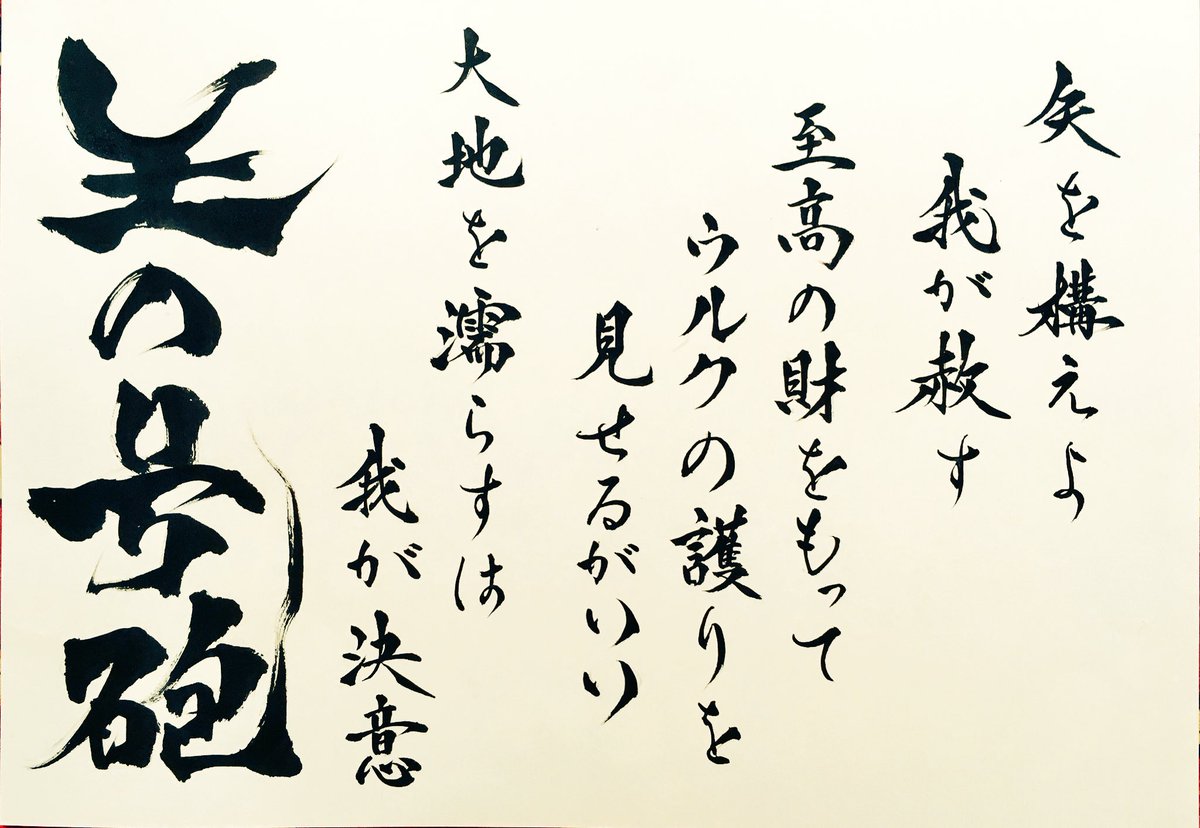 矢を構えよ
我が赦す
至高の財をもって
ウルクの護りを
見せるがいい
大地を濡らすは
我が決意
王の号砲